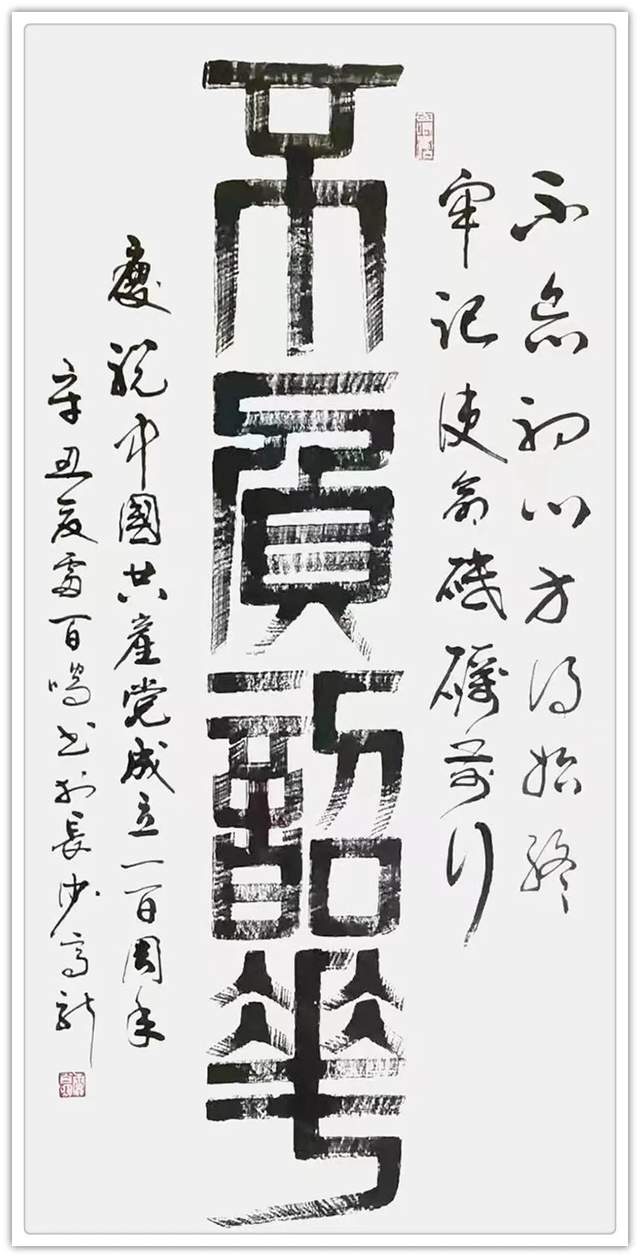 不忘初心方得始终
牢记使命砥砺前行
不負韶華
慶祝中國共產党成立一百周年
辛丑夏雷百鳴书於長沙高新